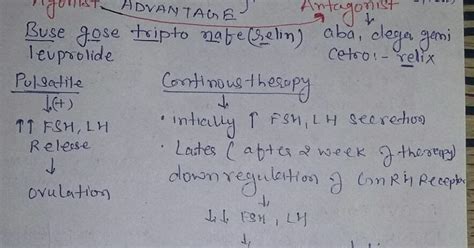 Agonist ADVANTAGE Antagonist
Buse gose tripto nafe (relin) aba, dega, gani
leuprolide cetro:- relix
Pulsatile Continous therapy
↓(+) ↓
↑↑ FSH, LH • Intially ↑ FSH, LH Secretion
Release • Lates (after 2 week of therapy)
↓ downregulation of GnRH Receptor
ovulation ↓
↓↓ FSH, LH
↓